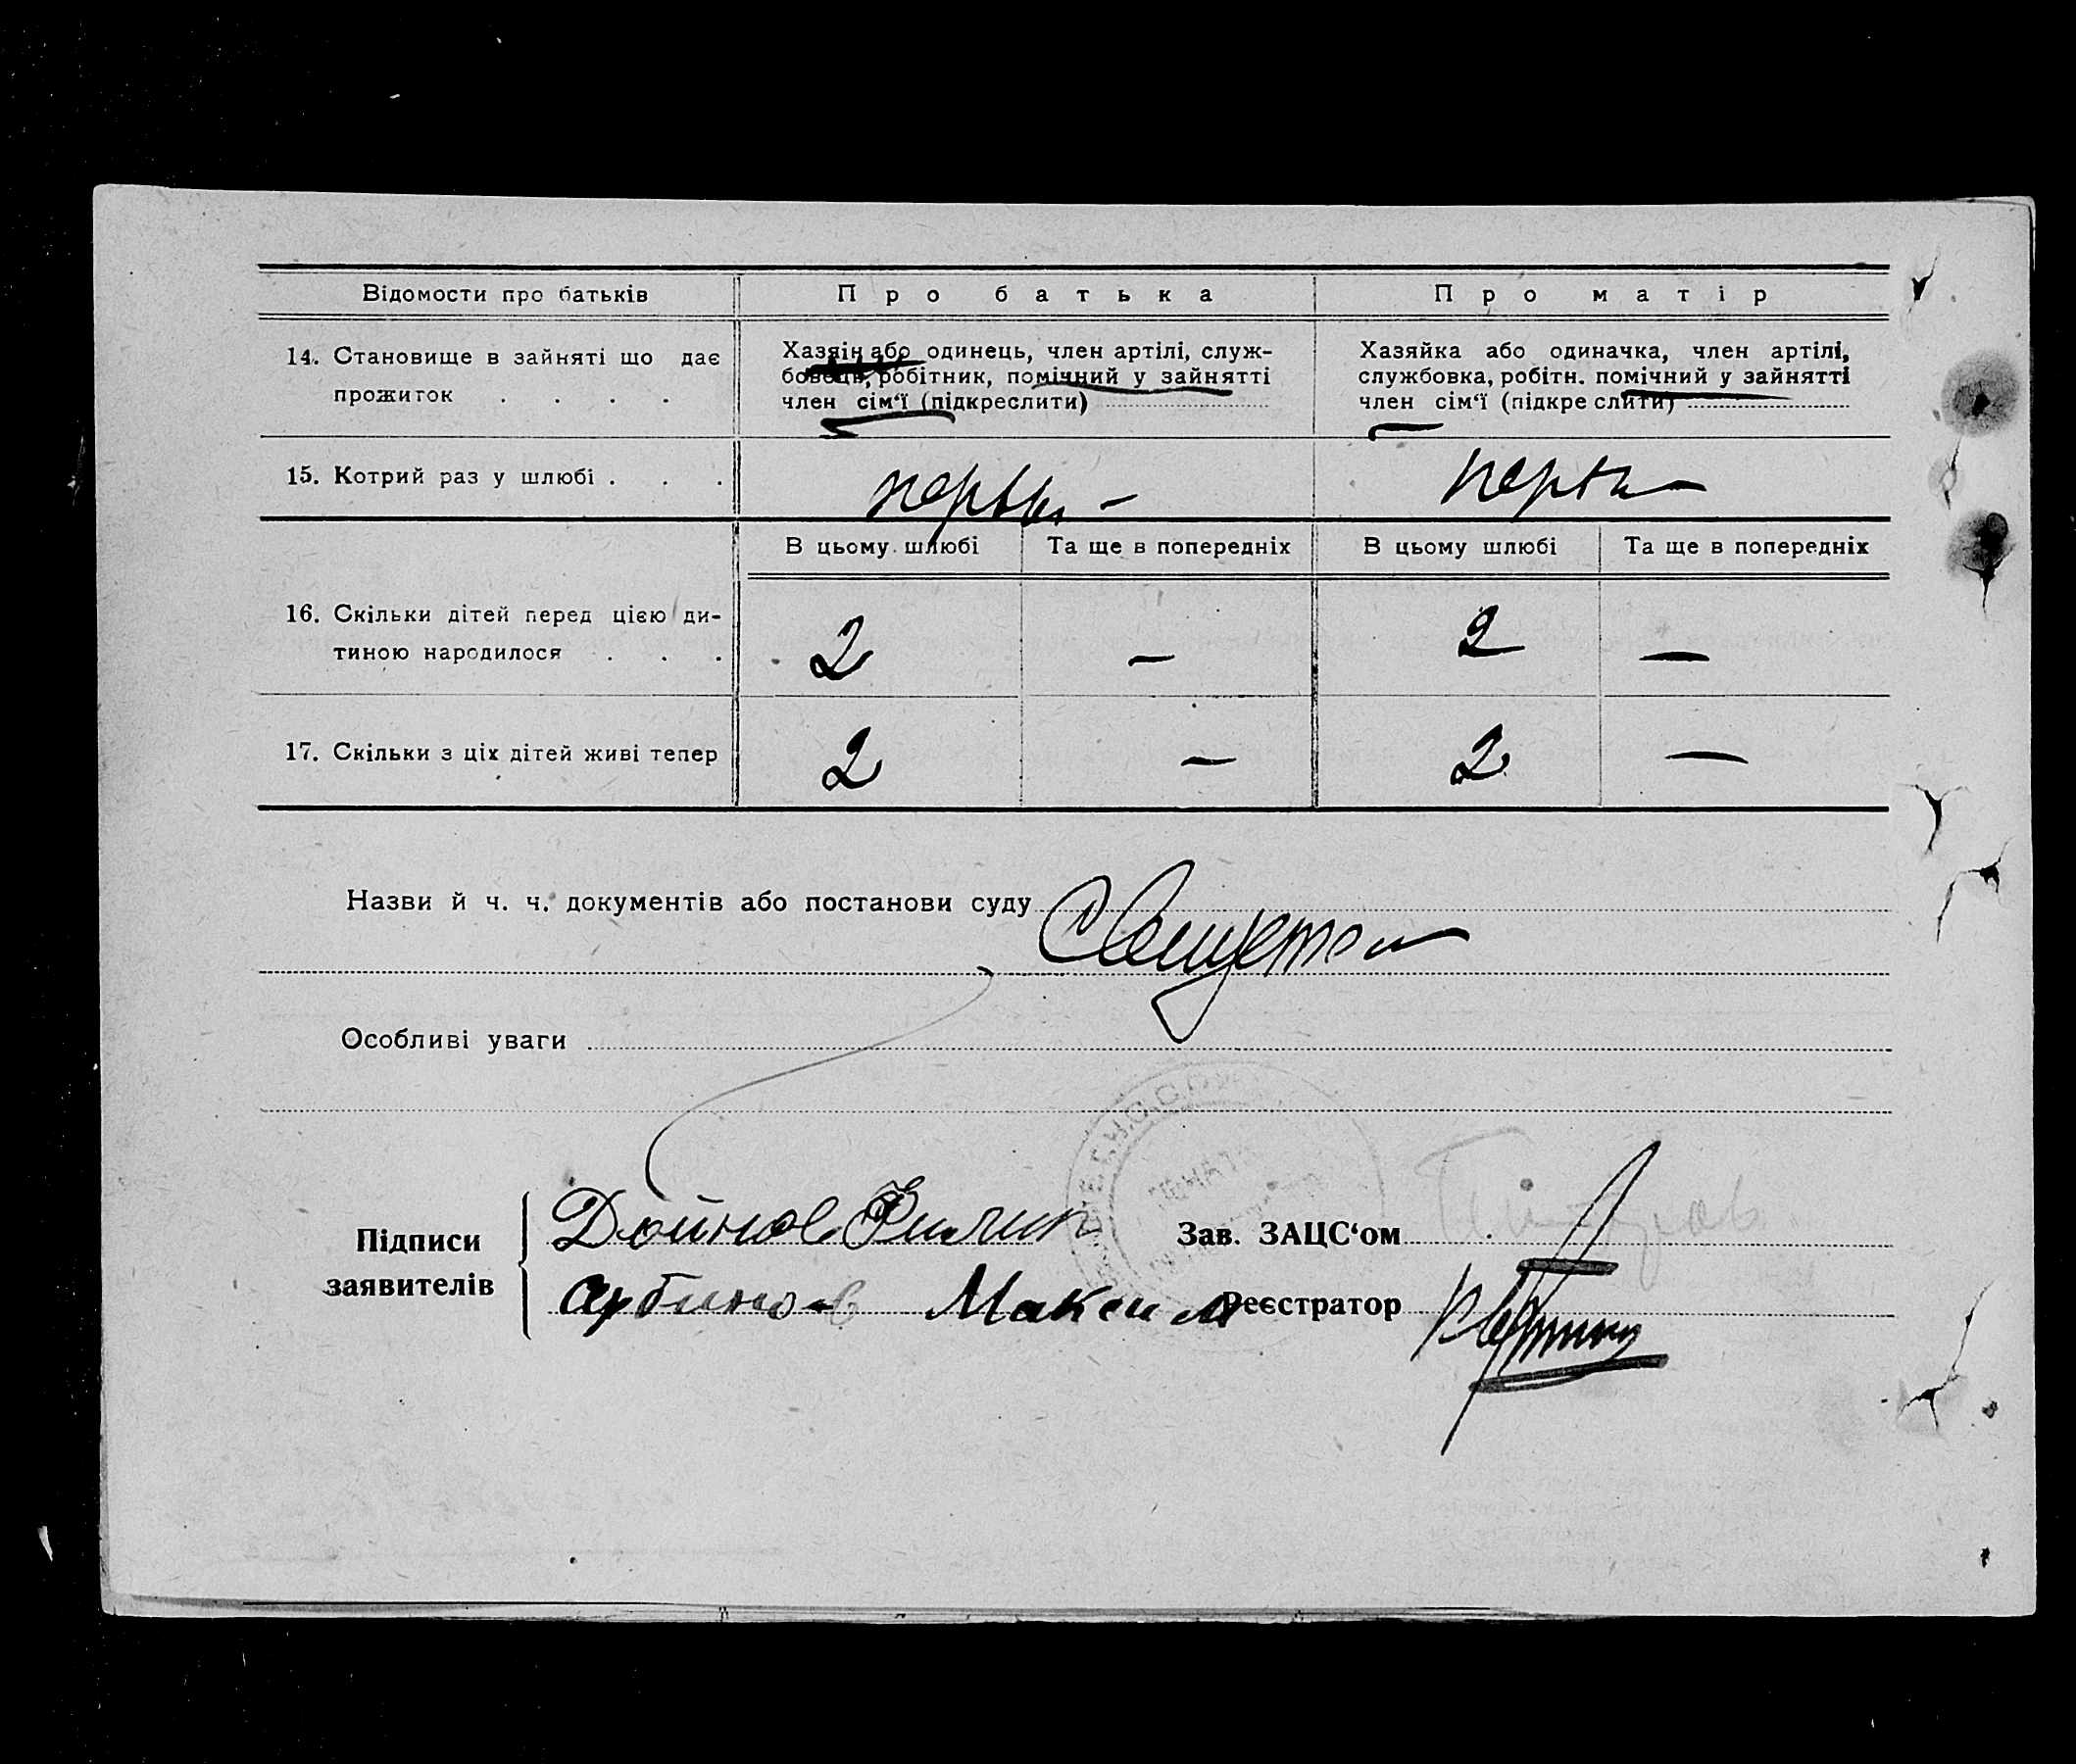 Відомости про батьків
Про батька
Про матір
14. Становище в зайняті що дає
прожиток . . . .
Хазяїн або одинець, член артілі, служ-
бовець, робітник, помічний у зайнятті
член сім‘ї (підкреслити)
Хазяйка або одиначка, член артілі,
службовка, робітн. помічний у зайнятті
член сім‘ї (підкреслити)
15. Котрий раз у шлюбі . . .
В цьому шлюбі
Та ще в попередніх
В цьому шлюбі
Та ще в попередніх
16. Скільки дітей перед цією ди-
тиною народилося . . .
2 — 2 —
17. Скільки з ціх дітей живі тепер
2 — 2 —
Назви й ч. ч. документів або постанови суду
Особливі уваги
Підписи
заявителів
Дойнов Филип
Арбинов Максим
Зав. ЗАЦС‘ом
Реєстратор